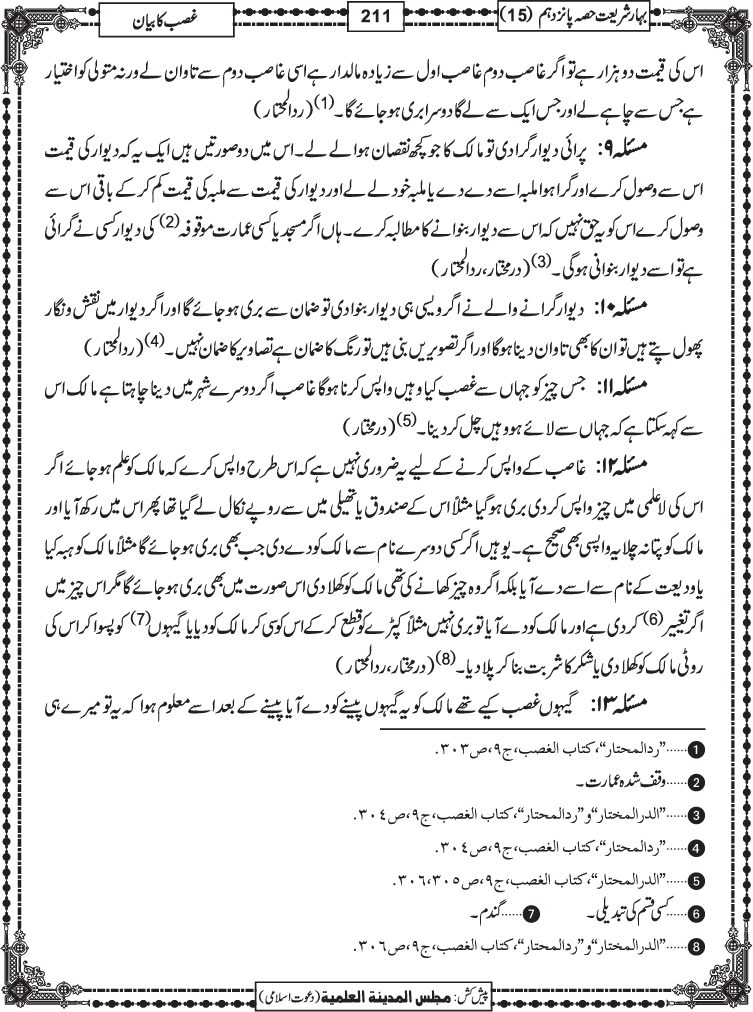 بہارِ شریعت حصہ پانزدہم (15)
211
غصب کا بیان
اس کی قیمت دو ہزار ہے تو اگر غاصب دوم غاصب اول سے زیادہ مالدار ہے اسی غاصب دوم سے تاوان لے ورنہ متولی کو اختیار
ہے جس سے چاہے لے اور جس ایک سے لے گا دوسرا بری ہوجائے گا۔(1) (ردالمحتار)
مسئلہ ۹: پرائی دیوار گرادی تو مالک کا جو کچھ نقصان ہوا لے لے۔ اس میں دو صورتیں ہیں ایک یہ کہ دیوار کی قیمت
اس سے وصول کرے اور گرا ہوا ملبہ اسے دے دے یا ملبہ خود لے لے اور دیوار کی قیمت سے ملبہ کی قیمت کم کرکے باقی اس سے
وصول کرے اس کو یہ حق نہیں کہ اس سے دیوار بنوانے کا مطالبہ کرے۔ ہاں اگر مسجد یا کسی عمارت موقوفہ(2) کی دیوار کسی نے گرائی
ہے تو اسے دیوار بنوانی ہوگی۔(3) (درمختار، ردالمحتار)
مسئلہ ۱۰: دیوار گرانے والے نے اگر ویسی ہی دیوار بنوادی تو ضمان سے بری ہوجائے گا اور اگر دیوار میں نقش و نگار
پھول پتے ہیں تو ان کا بھی تاوان دینا ہوگا اور اگر تصویریں بنی ہیں تو رنگ کا ضمان ہے تصاویر کا ضمان نہیں۔(4) (ردالمحتار)
مسئلہ ۱۱: جس چیز کو جہاں سے غصب کیا وہیں واپس کرنا ہوگا غاصب اگر دوسرے شہر میں دینا چاہتا ہے مالک اس
سے کہہ سکتا ہے کہ جہاں سے لائے ہو وہیں چل کر دینا۔(5) (درمختار)
مسئلہ ۱۲: غاصب کے واپس کرنے کے لیے یہ ضروری نہیں ہے کہ اس طرح واپس کرے کہ مالک کو علم ہوجائے اگر
اس کی لاعلمی میں چیز واپس کردی بری ہوگیا مثلاً اس کے صندوق یا تھیلی میں سے روپے نکال لے گیا تھا پھر اس میں رکھ آیا اور
مالک کو پتا نہ چلا یہ واپسی بھی صحیح ہے۔ یوہیں اگر کسی دوسرے نام سے مالک کو دے دی جب بھی بری ہوجائے گا مثلاً مالک کو ہبہ کیا
یا ودیعت کے نام سے اسے دے آیا بلکہ اگر وہ چیز کھانے کی تھی مالک کو کھلا دی اس صورت میں بھی بری ہوجائے گا مگر اس چیز میں
اگر تغییر(6) کردی ہے اور مالک کو دے آیا تو بری نہیں مثلاً کپڑے کو قطع کرکے اس کو سی کر مالک کو دیا یا گیہوں(7) کو پسوا کر اس کی
روٹی مالک کو کھلا دی یا شکر کا شربت بنا کر پلا دیا۔(8) (درمختار، ردالمحتار)
مسئلہ ۱۳: گیہوں غصب کیے تھے مالک کو یہ گیہوں پیسنے کو دے آیا پیسنے کے بعد اسے معلوم ہوا کہ یہ تو میرے ہی
1......"ردالمحتار"، کتاب الغصب، ج۹، ص۳۰۳.
2......وقف شدہ عمارت۔
3......"الدرالمختار" و "ردالمحتار"، کتاب الغصب، ج۹، ص۳۰٤.
4......"ردالمحتار"، کتاب الغصب، ج۹، ص۳۰٤.
5......"الدرالمختار"، کتاب الغصب، ج۹، ص۳۰۵، ۳۰٦.
6......کسی قسم کی تبدیلی۔ 7......گندم۔
8......"الدرالمختار" و "ردالمحتار"، کتاب الغصب، ج۹، ص۳۰٦.
پیش کش: مجلس المدینۃ العلمیۃ (دعوت اسلامی)